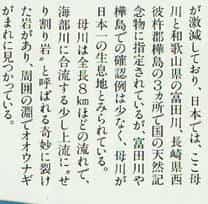 が激減しており、日本では、ここ母
川と和歌山県の富田川、長崎県西
彼杵郡樺島の3ヵ所で国の天然記
念物に指定されているが、富田川や
樺島での確認例は少なく、母川が
日本一の生息地とみられている。
母川は全長8kmほどの流れで、
海部川に合流する少し上流に〝せ
り割り岩〟と呼ばれる奇妙に裂け
た岩があり、周囲の淵でオオウナギ
がまれに見つかっている。